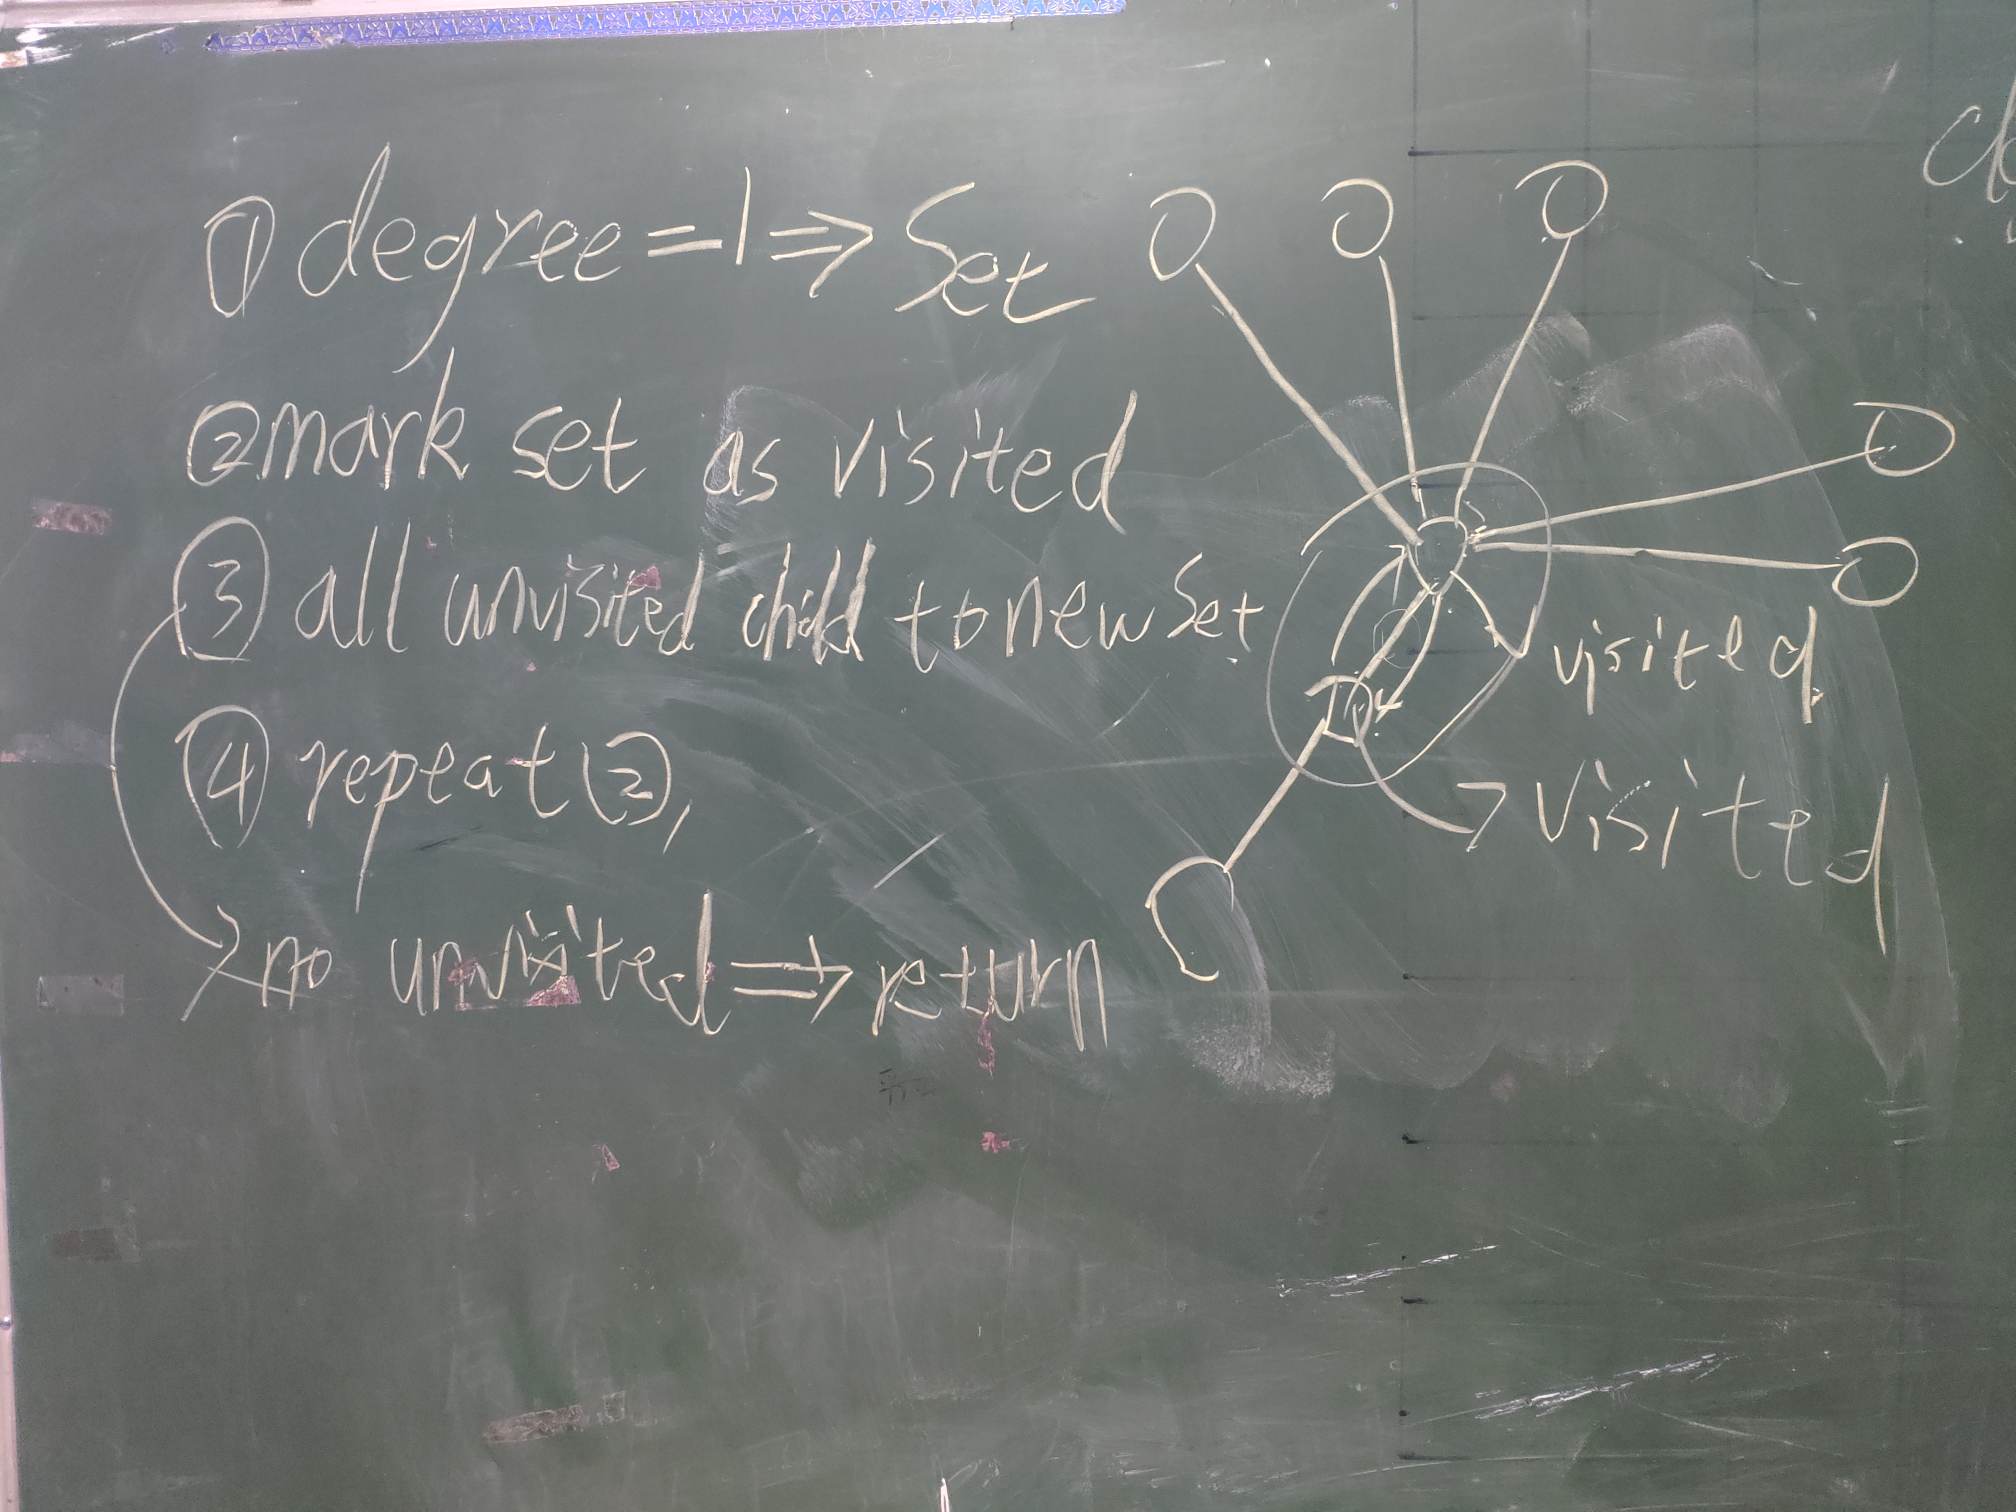 ① degree=1⇒Set
② mark set as visited
③ all unvisited child to new Set
④ repeat ②,
no unvisited⇒return
visited
visited